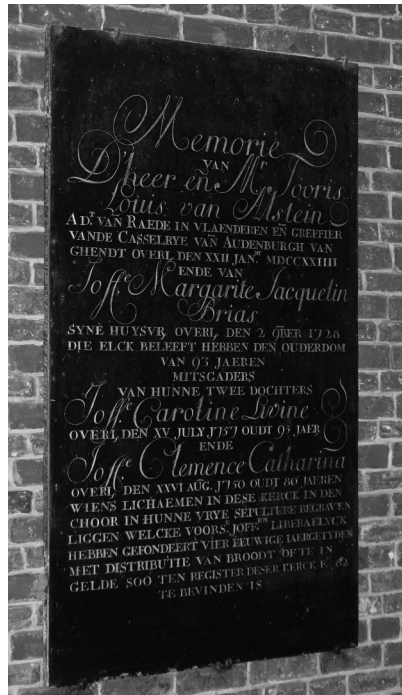 Memorie
VAN Mr
D'heer en Mr Jooris
Louis van Alstein
ADt VAN RAEDE IN VLAENDEREN EN GREFFIER
VANDE CASSELRYE VAN AUDENBURGH VAN
GHENDT OVERL. DEN XXII JANry MDCCXXIIII
ENDE VAN
Joffe Margarite Jacquelin
Brias
SYNE HUYSVR. OVERL. DEN 2 9BER 1728
DIE ELCK BELEEFT HEBBEN DEN OUDERDOM
VAN 93 JAEREN
MITSGADERS
VAN HUNNE TWEE DOCHTERS
Joffe Caroline Livine
OVERL. DEN XV JULY J757 OUDT 93 JAER
ENDE
Joffe Clemence Catharina
OVERL. DEN XXVI AUG. J750 OUDT 80 JAEREN
WIENS LICHAEMEN IN DESE KERCK IN DEN
CHOOR IN HUNNE VRYE SEPULTURE BEGRAVEN
LIGGEN WELCKE VOORSn JOFFEN LIBERAELYCK
HEBBEN GEFONDEERT VIER EEUWIGE JAERGETYDEN
MET DISTRIBUTIE VAN BROODT OFTE IN
GELDE SOO TEN REGISTER DESER KERCK Fo 82
TE BEVINDEN IS